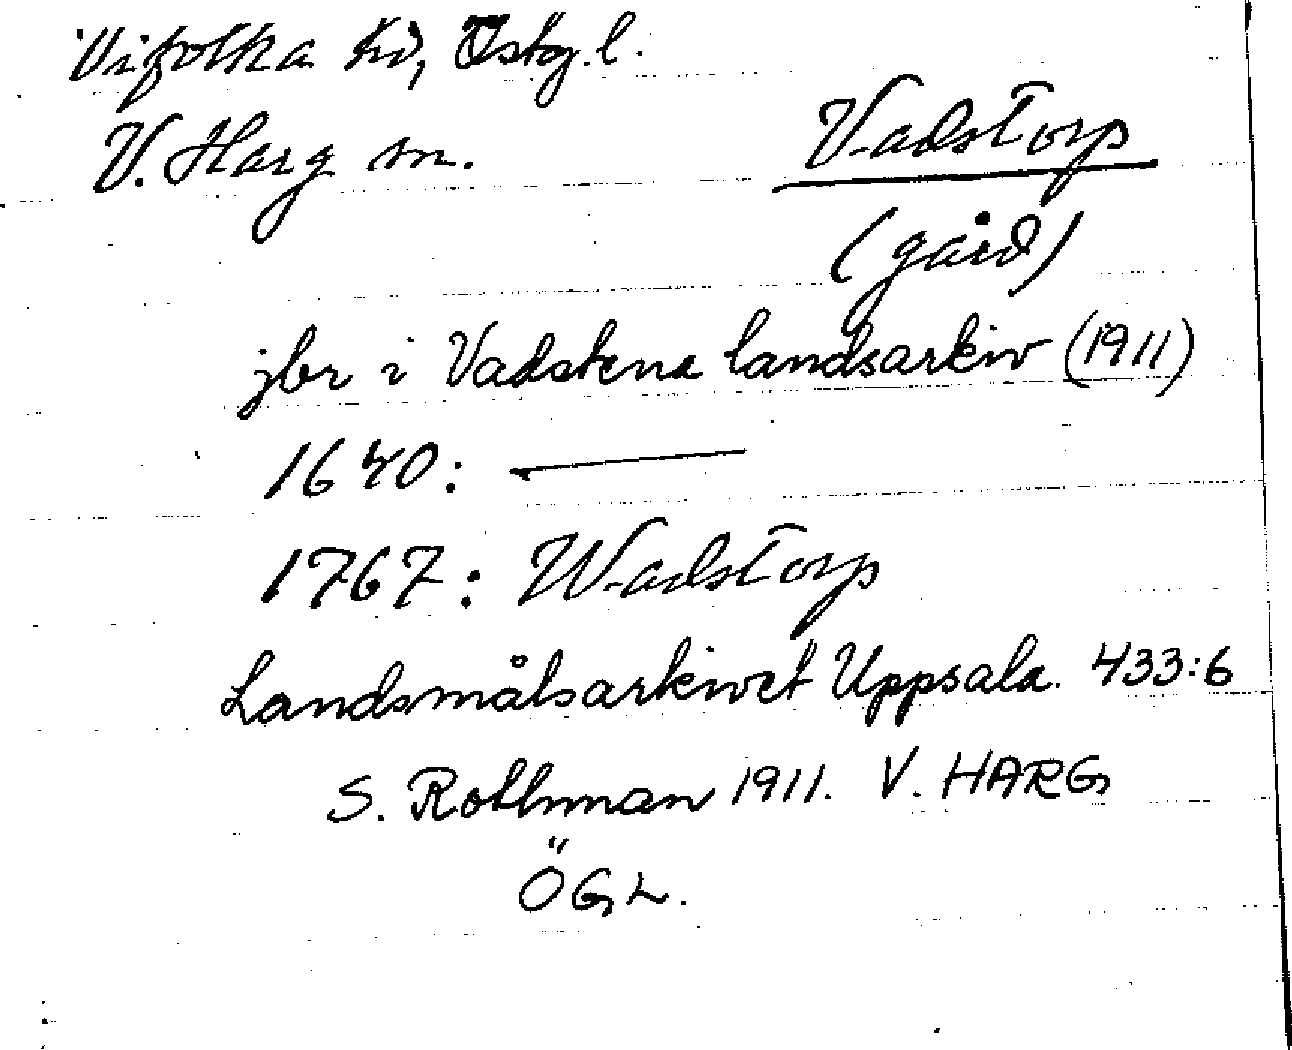 Vifolka hd, Östg. l.
V. Harg sn.
Vadstorp
(gård)
jbr i Vadstena landsarkiv (1911)
1640: —
1767: Wadstorp
Landsmålsarkivet Uppsala. 433:6
S. Rothman 1911. V. HARG
ÖGL.